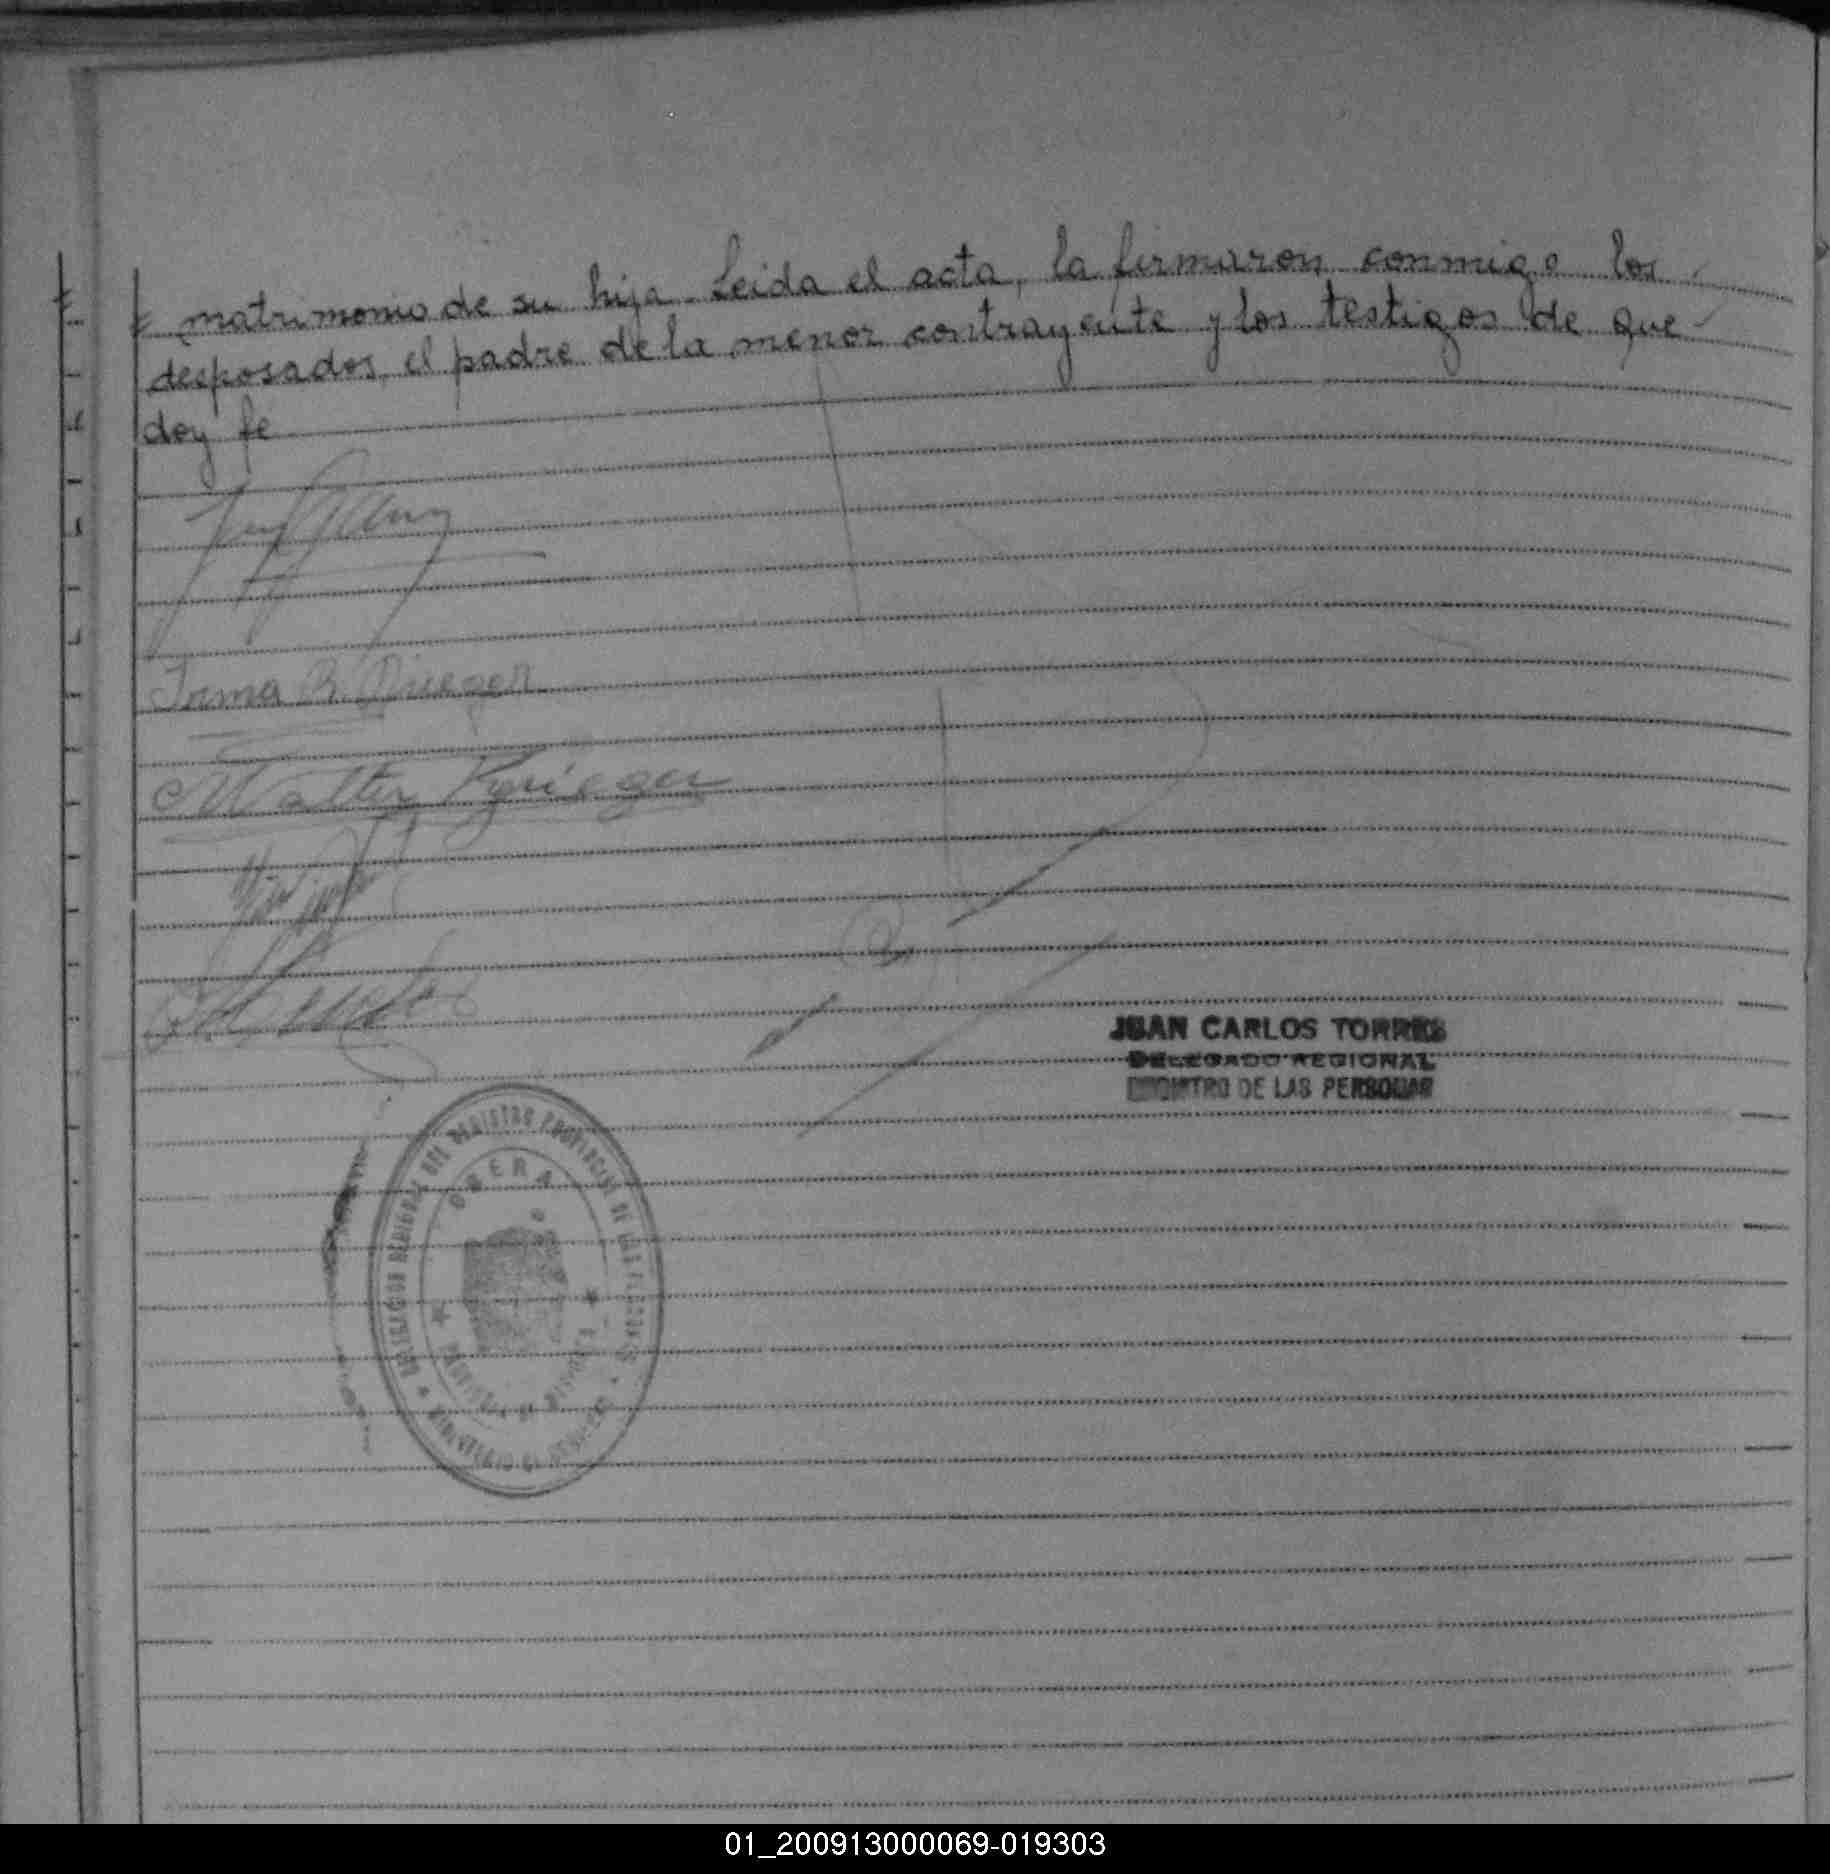 matrimonio de su hija. Leida el acta, la firmaron conmigo los
desposados, el padre de la menor contrayente y los testigos de que
doy fe
Irma
Walter Krieger
JUAN CARLOS TORRES
DELEGADO REGIONAL
REGISTRO DE LAS PERSONAS
DEL REGISTRO PROVINCIAL DE LAS PERSONAS
OBERA
PROVINCIA DE MISIONES
MINISTERIO DE GOBIERNO
01_200913000069-019303